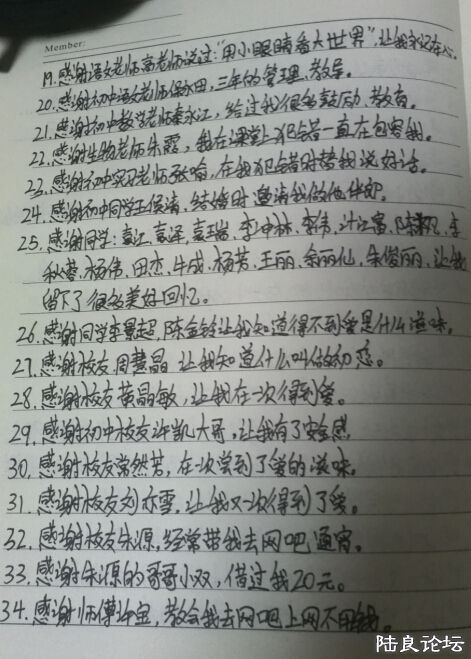 Member:
19.感谢语文老师高老师说过:"用小眼睛看大世界",让我永记在心。
20.感谢初中语文老师保水田,三年的管理、教导。
21.感谢初中数学老师秦永江,给过我很多鼓励、教育。
22.感谢生物老师朱霞,我在课堂上犯错一直在包容我。
23.感谢初中实习老师张喻,在我犯错时替我说好话。
24.感谢初中同学王俊涛,结婚时邀请我做他伴郎。
25.感谢同学:袁江、袁泽、袁瑞、李中林、李伟、计江富、陈、李
秋蓉、杨伟、田杰、牛成、杨芳、王丽、余丽仙、朱俊丽、让我
留下了很多美好回忆。
26.感谢同学李景超、陈金铃让我知道得不到爱是什么滋味。
27.感谢校友周慧晶,让我知道什么叫做初恋。
28.感谢校友黄晶敏,让我在一次得到爱。
29.感谢初中校友许凯大哥,让我有了安全感
30.感谢校友常然芳,在次尝到了爱的滋味。
31.感谢校友刘亦雪,让我又一次得到了爱。
32.感谢校友朱源,经常带我去网吧通宵。
33.感谢朱源的哥哥小双,借过我20元。
34.感谢师傅许宝,教会我去网吧上网不用钱。
陆良论坛